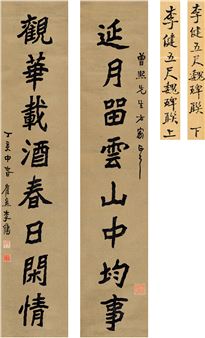 延月留雲山中均事
曾熙先生方家正之
觀華載酒春日閑情
丁亥中春 李健
李健五尺魏碑聯 下
李健五尺魏碑聯 上